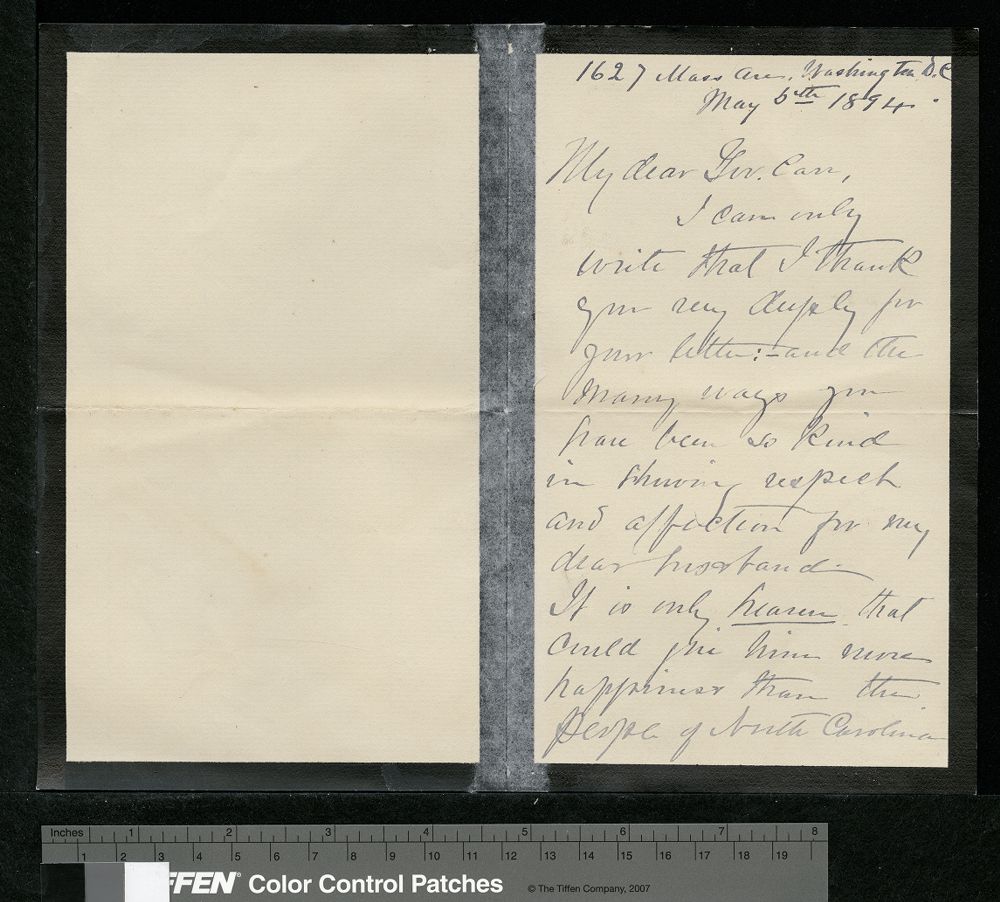 1627 Mass Ave. Washington D.C
May 5th 1894.
My dear Gov. Carr,
I can only
write that I thank
you very deeply for
your letter:- and the
many ways you
have been so kind
in showing respect
and affection for my
dear husband-
It is only heaven that
could give him more
happiness than the
people of North Carolina
Inches 1 2 3 4 5 6 7 8
1 2 3 4 5 6 7 8 9 10 11 12 13 14 15 16 17 18 19
FFEN® Color Control Patches © The Tiffen Company, 2007